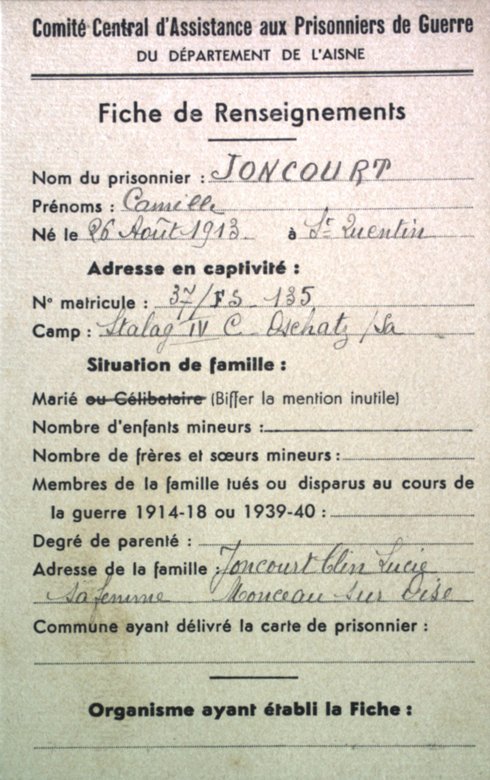 Comité Central d'Assistance aux Prisonniers de Guerre
DU DÉPARTEMENT DE L'AISNE
Fiche de Renseignements
Nom du prisonnier : JONCOURT
Prénoms : Camille
Né le 26 Août 1913 à St Quentin
Adresse en captivité :
N° matricule : 37/FS 135
Camp : Stalag IV C Oschatz /Sa
Situation de famille :
Marié ou Célibataire (Biffer la mention inutile)
Nombre d'enfants mineurs :
Nombre de frères et sœurs mineurs :
Membres de la famille tués ou disparus au cours de
la guerre 1914-18 ou 1939-40 :
Degré de parenté :
Adresse de la famille : Joncourt Clin Lucie
Sa femme Monceau sur Oise
Commune ayant délivré la carte de prisonnier :
Organisme ayant établi la Fiche :